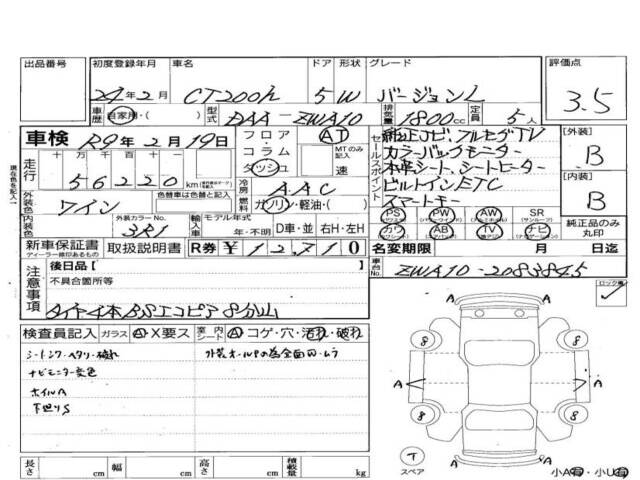 出品番号 初度登録年月 車名 ドア 形状 グレード 評価点
24年2月 CT200h 5W バージョンL 3.5
車歴 自家用・( ) 型式 DAA-ZWA10 排気量 1800cc 定員 5人
車検 R9年2月19日 フロア AT
コラム MTのみ記入
ダッシュ 速
セールスポイント
純正ナビ、フルセグTV
カラーバックモニター
本革シート、シートヒーター
ビルトインETC
スマートキー
[外装] B
[内装] B
走行 十万 万 千 百 十 一
56220 km
冷房 AAC
外装色 ワイン 色替車は色替と記入
燃料 ガソリン・軽油・( )
内装色 外装カラーNo. 3R1
輸入車 モデル年式 年・不明 D車・並 右H・左H
PS PW AW SR
(パワステ) (パワーウインド) (アルミホイル) (サンルーフ)
カワ AB TV ナビ
純正品のみ丸印
現在色を記入
新車保証書 取扱説明書 R券 ¥12,710
ディーラー捺印あるもの
名変期限 月 日迄
車台No. ZWA10-2083845
注意事項
後日品[ ]
不具合箇所等
タイヤ4本BSエコピア8分山
検査員記入 ガラス A・X要ス 室内シート A コゲ・穴・汚れ・破れ
シートシワ・ヘタリ・破れ
ナビモニター変色
ホイルA
下廻りS
8 8 8 8
A A A A A
T
スペア
小A有・小U有
長さ cm 幅 cm 高さ cm 積載量 kg